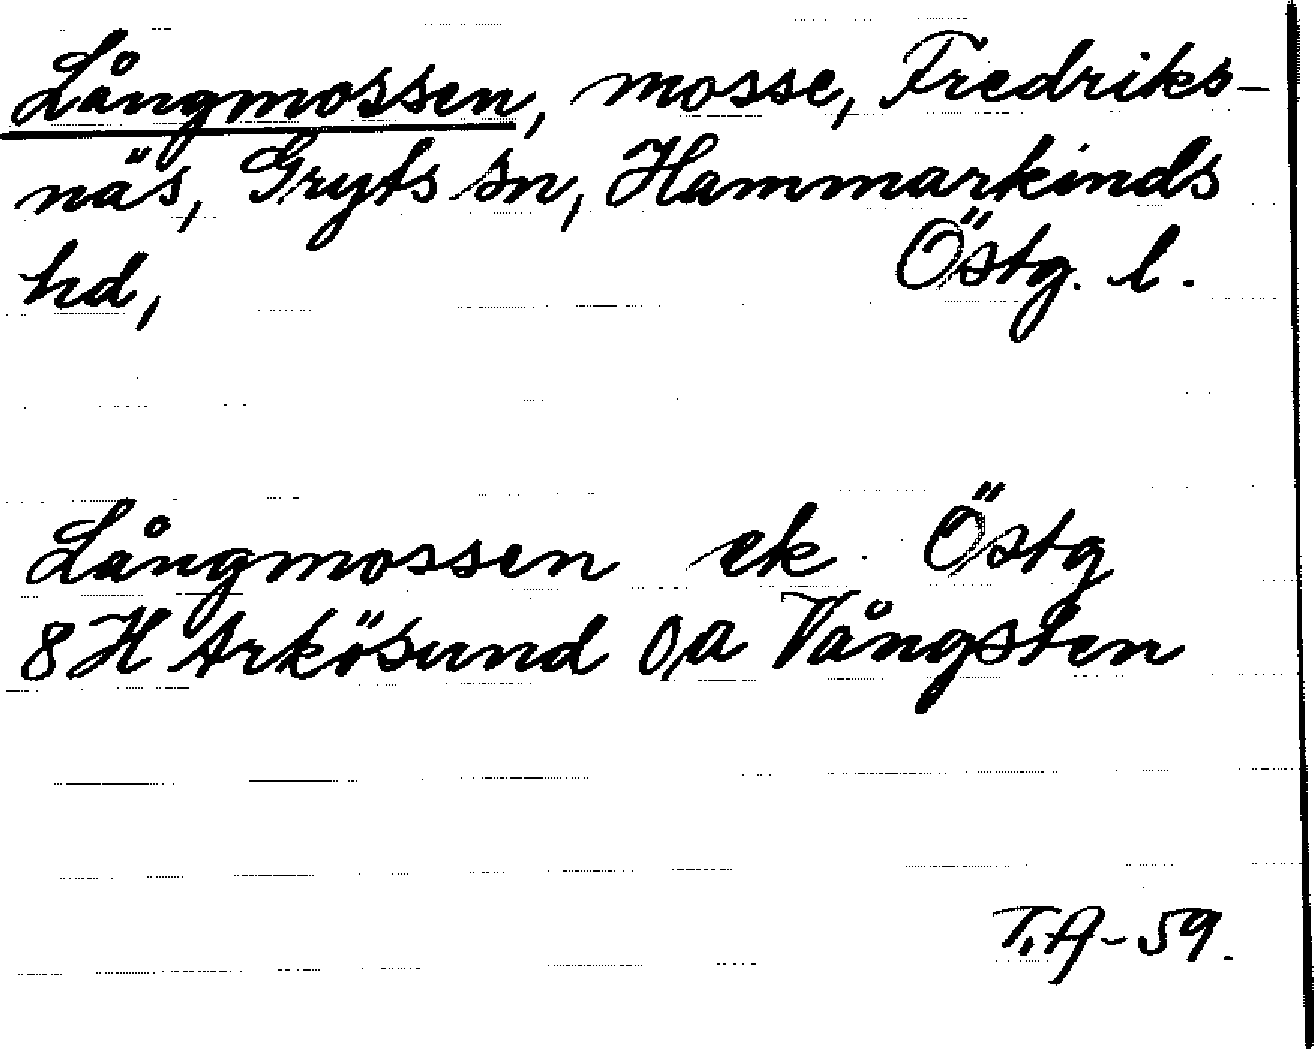 Långmossen, mosse, Fredriks-
näs, Gryts sn, Hammarkinds
hd, Östg. l.
Långmossen ek. Östg
8H Arkösund 0a Vångsten
T.A-59.